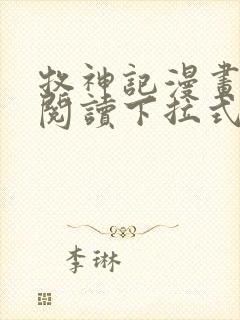 牧神記漫畫
閱讀下拉式
李琳